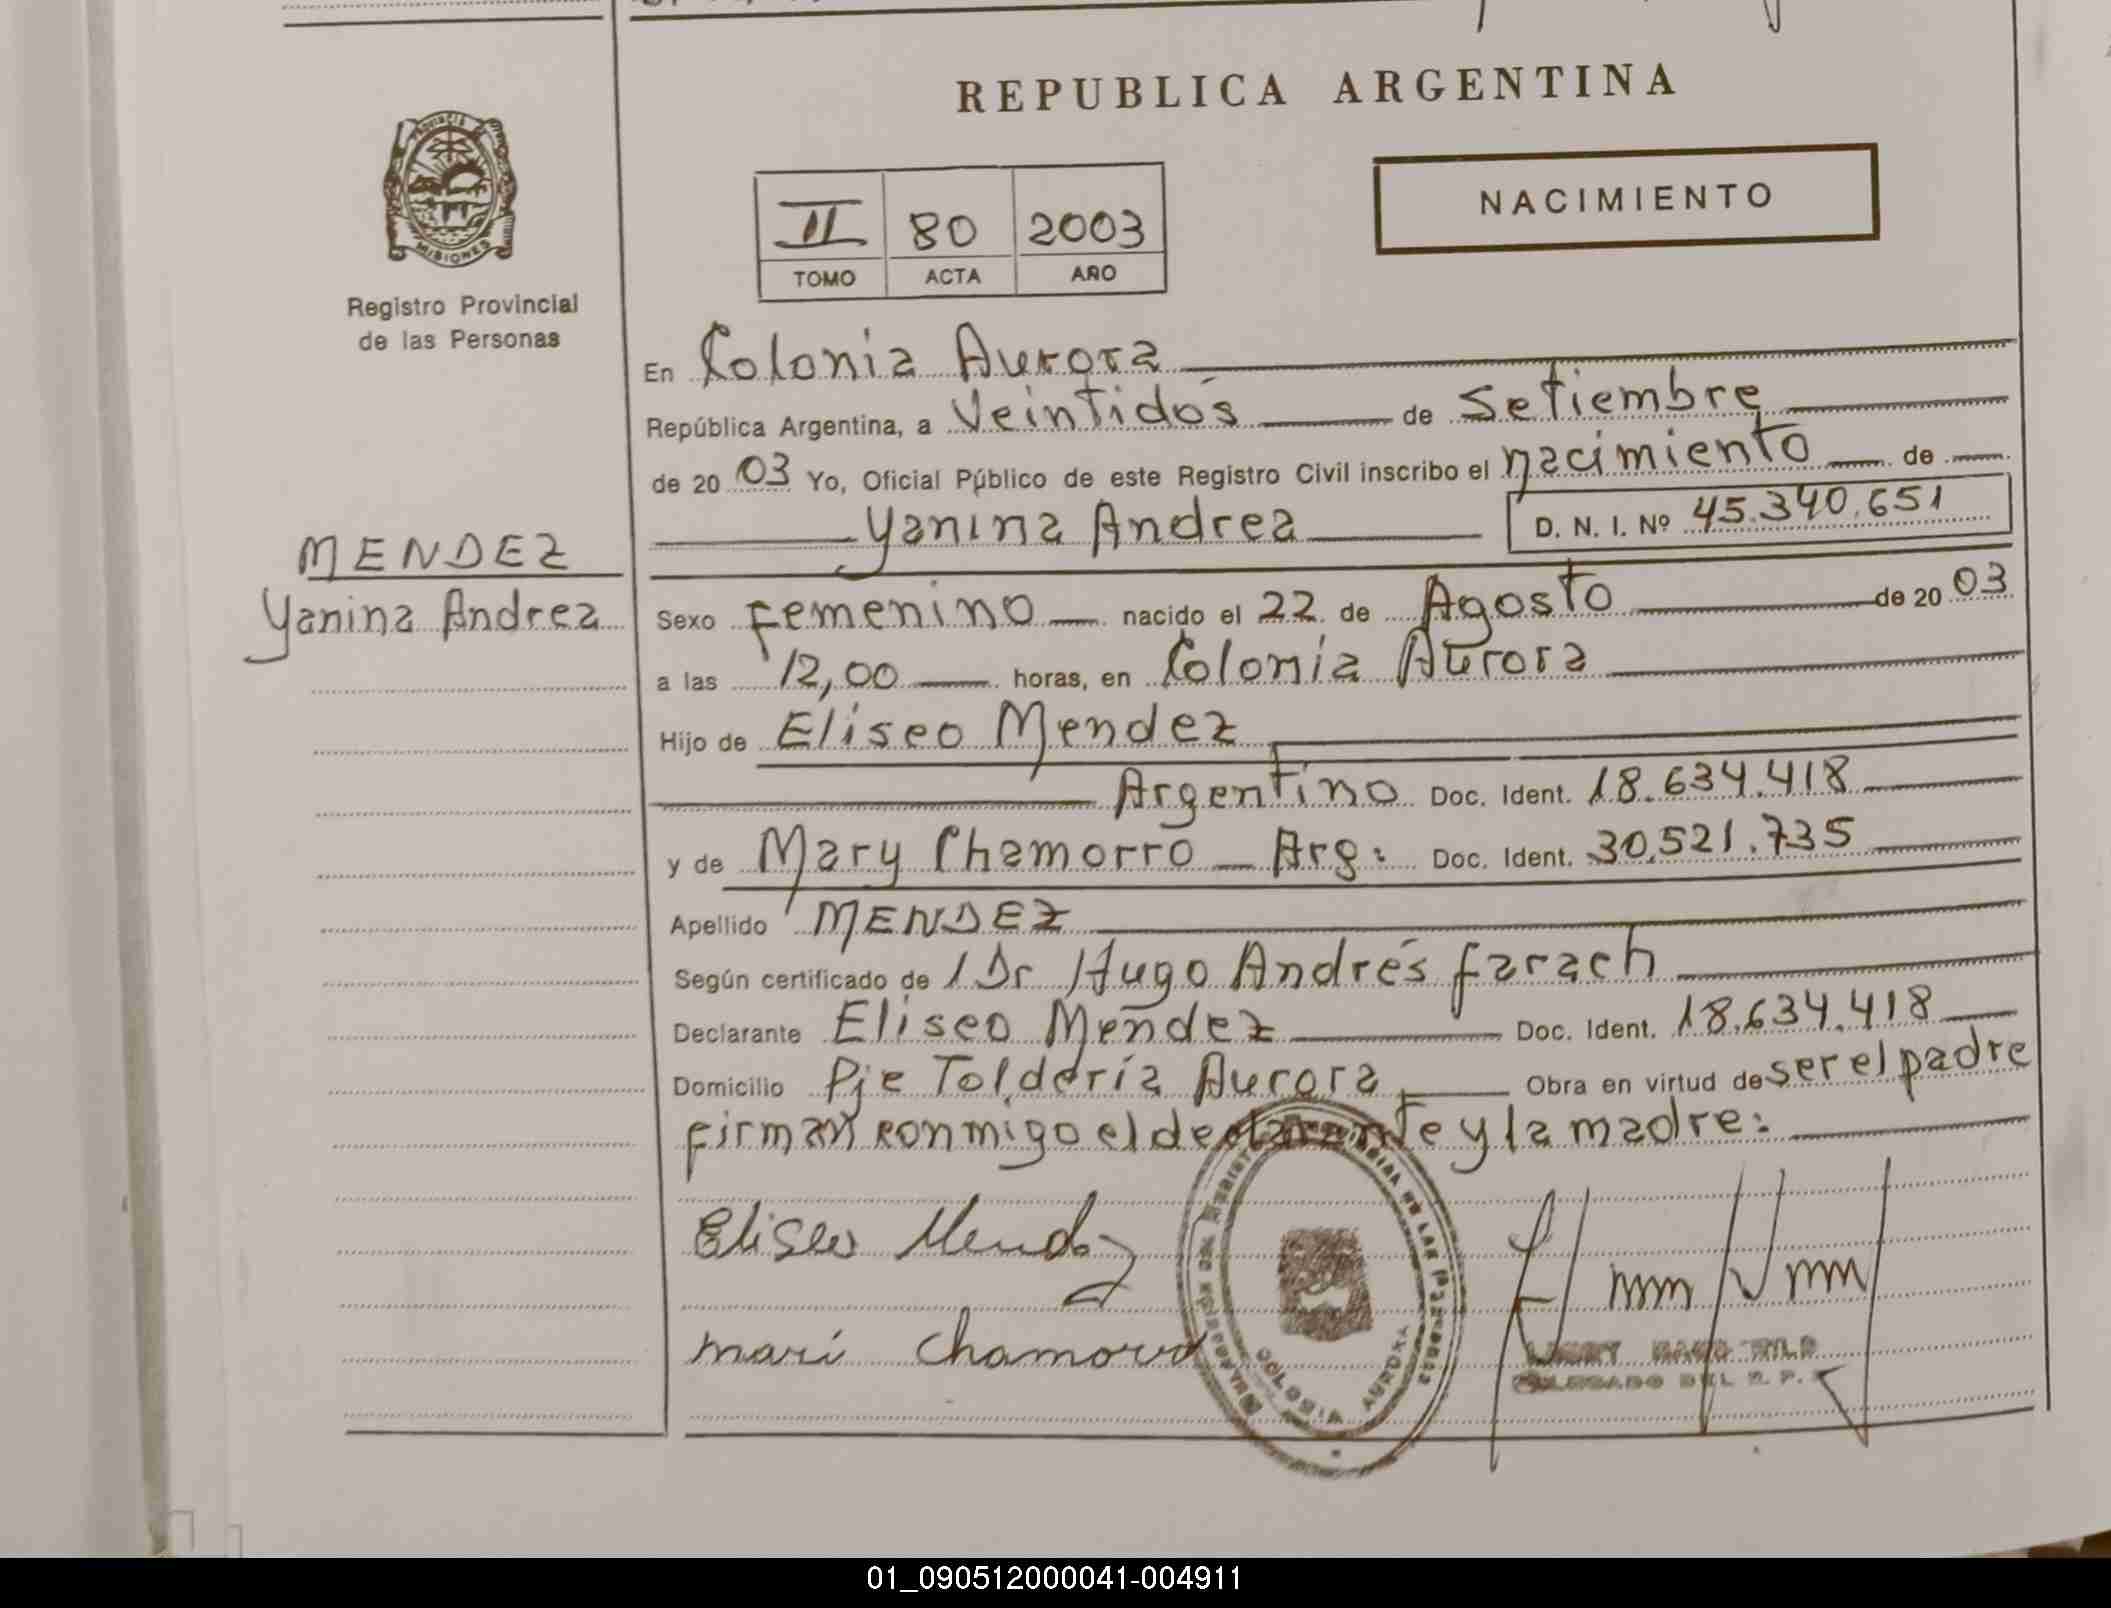 REPUBLICA ARGENTINA
PROVINCIA DE
MISIONES
Registro Provincial
de las Personas
NACIMIENTO
II 80 2003
TOMO ACTA AÑO
En Colonia Aurora
República Argentina, a Veintidós de Setiembre
de 20 03 Yo, Oficial Público de este Registro Civil inscribo el nacimiento de
Yanina Andrea D. N. I. Nº 45.340.651
MENDEZ
Yanina Andrea
Sexo Femenino nacido el 22 de Agosto de 20 03
a las 12,00 horas, en Colonia Aurora
Hijo de Eliseo Mendez
Argentino Doc. Ident. 18.634.418
y de Mary Chamorro Arg: Doc. Ident. 30.521.735
Apellido MENDEZ
Según certificado de l Dr Hugo Andrés Farach
Declarante Eliseo Mendez Doc. Ident. 18.634.418
Domicilio Pje Toldería Aurora Obra en virtud de ser el padre
firman conmigo el declarante y la madre:
Eliseo Mendez
mari chamorro
COLONIA AURORA
01_090512000041-004911